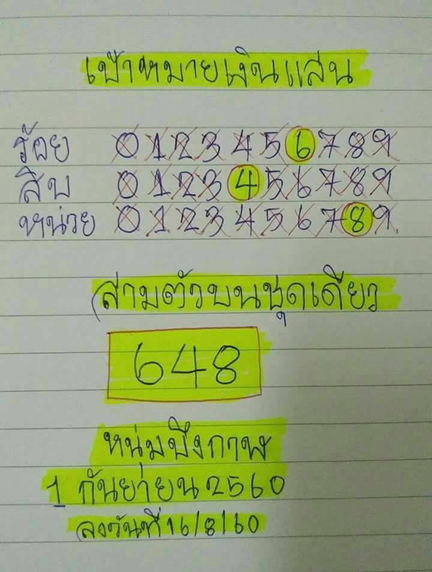 เป้าหมายเงินแสน
ร้อย 0 1 2 3 4 5 6 7 8 9
สิบ 0 1 2 3 4 5 6 7 8 9
หน่วย 0 1 2 3 4 5 6 7 8 9
สามตัวบนชุดเดียว
648
หนุ่มบึงกาฬ
1 กันยายน 2560
ลงวันที่ 16/8/60